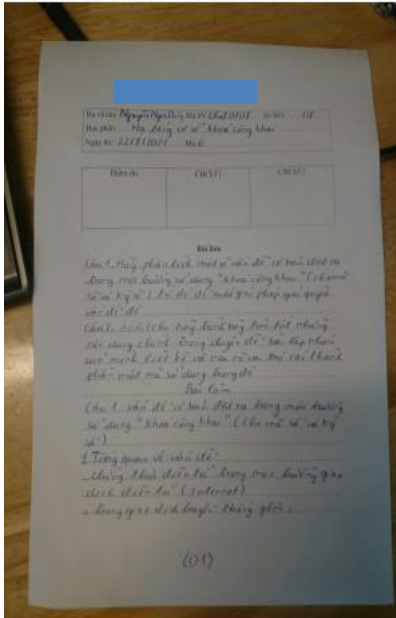 Họ và tên: Nguyễn Ngọc Mã SV: Số BD: 08
Học phần: Hạ tầng cơ sở khóa công khai
Ngày thi: Mã đề:
Điểm thi CBChT1 CBChT2
Bài làm
Câu 1. Hãy phân tích một số vấn đề cơ bản đặt ra
trong môi trường sử dụng "khóa công khai" (cho mã
số và ký số) từ đó đề xuất giải pháp giải quyết
vấn đề đó
Câu 2. Anh (chị) hãy trình bày tóm tắt những
nội dung chính trong chuyên đề bài tập
thiết kế và nêu rõ vai trò các thành
phần mật mã sử dụng trong đó
Bài làm
Câu 1. vấn đề cơ bản đặt ra trong môi trường
sử dụng "khóa công khai" (cho mã số và ký
số)
1. Tổng quan về vấn đề
- chứng thực điện tử trong môi trường giao
dịch điện tử (internet)
- trong giao dịch truyền thống gồm:
(01)